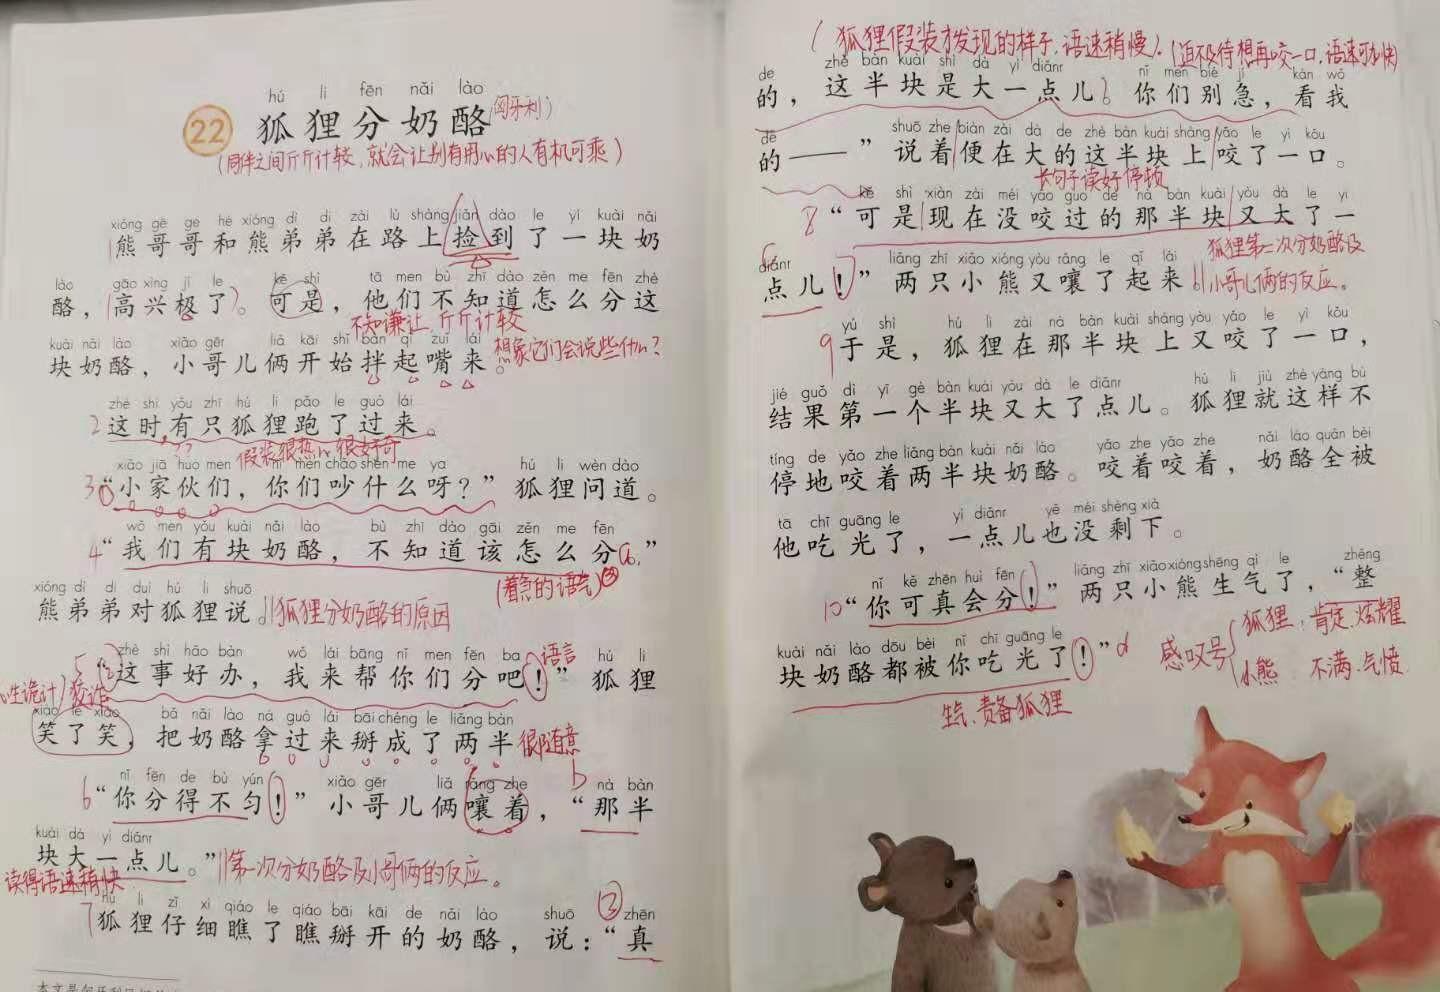 hú li fēn nǎi lào
22 狐狸分奶酪(匈牙利)
(同伴之间斤斤计较,就会让别有用心的人有机可乘)
xióng gē ge hé xióng dì di zài lù shàng jiǎn dào le yí kuài nǎi
1熊哥哥和熊弟弟在路上捡到了一块奶
lào gāo xìng jí le kě shì tā men bù zhī dào zěn me fēn zhè
酪,高兴极了。可是,他们不知道怎么分这
不知谦让 斤斤计较
kuài nǎi lào xiǎo gēr liǎ kāi shǐ bàn qǐ zuǐ lái
块奶酪,小哥儿俩开始拌起嘴来。想象它们会说些什么?
zhè shí yǒu zhī hú li pǎo le guò lái
2这时有只狐狸跑了过来。
假装很热心、很好奇
xiǎo jiā huo men nǐ men chǎo shén me ya hú li wèn dào
3“小家伙们,你们吵什么呀?”狐狸问道。
wǒ men yǒu kuài nǎi lào bù zhī dào gāi zěn me fēn
4“我们有块奶酪,不知道该怎么分。”
(着急的语气)
xióng dì di duì hú li shuō
熊弟弟对狐狸说。狐狸分奶酪的原因
zhè shì hǎo bàn wǒ lái bāng nǐ men fēn ba hú li
5“这事好办,我来帮你们分吧!”狐狸
语言
心生诡计 狡诈
xiào le xiào bǎ nǎi lào ná guò lái bāi chéng le liǎng bàn
笑了笑,把奶酪拿过来掰成了两半 很随意
nǐ fēn de bù yún xiǎo gēr liǎ rǎng zhe nà bàn
6“你分得不匀!”小哥儿俩嚷着,“那半
kuài dà yì diǎnr
块大一点儿。”第一次分奶酪及小哥俩的反应。
读得语速稍快
hú li zǐ xì qiáo le qiáo bāi kāi de nǎi lào shuō zhēn
7狐狸仔细瞧了瞧掰开的奶酪,说:“真
(狐狸假装才发现的样子,语速稍慢)(迫不及待想再咬一口,语速可加快)
de zhè bàn kuài shì dà yì diǎnr nǐ men bié jí kàn wǒ
的,这半块是大一点儿。你们别急,看我
de shuō zhe biàn zài dà de zhè bàn kuài shàng yǎo le yì kǒu
的——”说着便在大的这半块上咬了一口。
长句子读好停顿
kě shì xiàn zài méi yǎo guo de nà bàn kuài yòu dà le yì
8“可是现在没咬过的那半块又大了一
狐狸第二次分奶酪及
diǎnr liǎng zhī xiǎo xióng yòu rǎng le qǐ lái
点儿!”两只小熊又嚷了起来。小哥儿俩的反应。
yú shì hú li zài nà bàn kuài shàng yòu yǎo le yì kǒu
9于是,狐狸在那半块上又咬了一口,
jié guǒ dì yī gè bàn kuài yòu dà le diǎnr hú li jiù zhè yàng bù
结果第一个半块又大了点儿。狐狸就这样不
tíng de yǎo zhe liǎng bàn kuài nǎi lào yǎo zhe yǎo zhe nǎi lào quán bèi
停地咬着两半块奶酪。咬着咬着,奶酪全被
tā chī guāng le yì diǎnr yě méi shèng xià
他吃光了,一点儿也没剩下。
nǐ kě zhēn huì fēn liǎng zhī xiǎo xióng shēng qì le zhěng
10“你可真会分!”两只小熊生气了,“整
kuài nǎi lào dōu bèi nǐ chī guāng le
块奶酪都被你吃光了!”
感叹号 狐狸:肯定、炫耀
小熊 不满、气愤
生气、责备狐狸